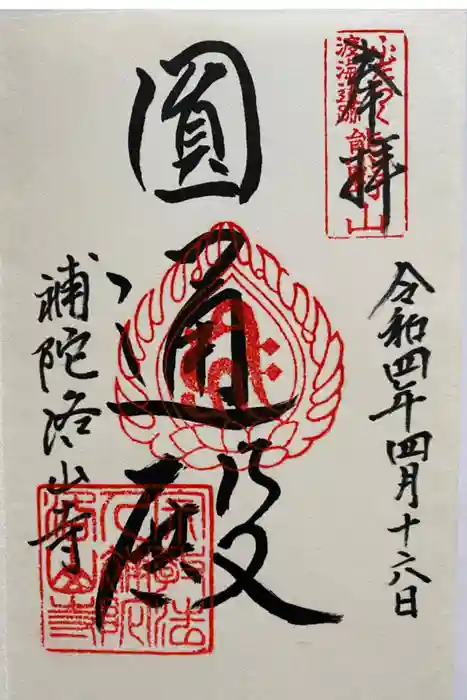 奉拝
ふだらく
渡海
熊野山
令和四年四月十六日
圓通殿
補陀洛山寺